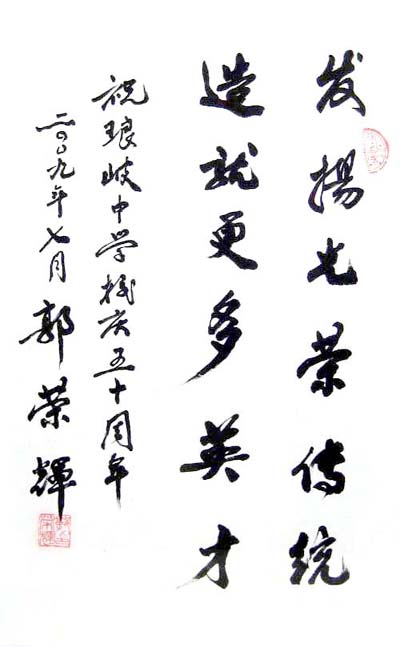 发揚光荣傳統
造就更多英才
祝琅岐中学校庆五十周年
二〇〇九年七月
郭荣輝